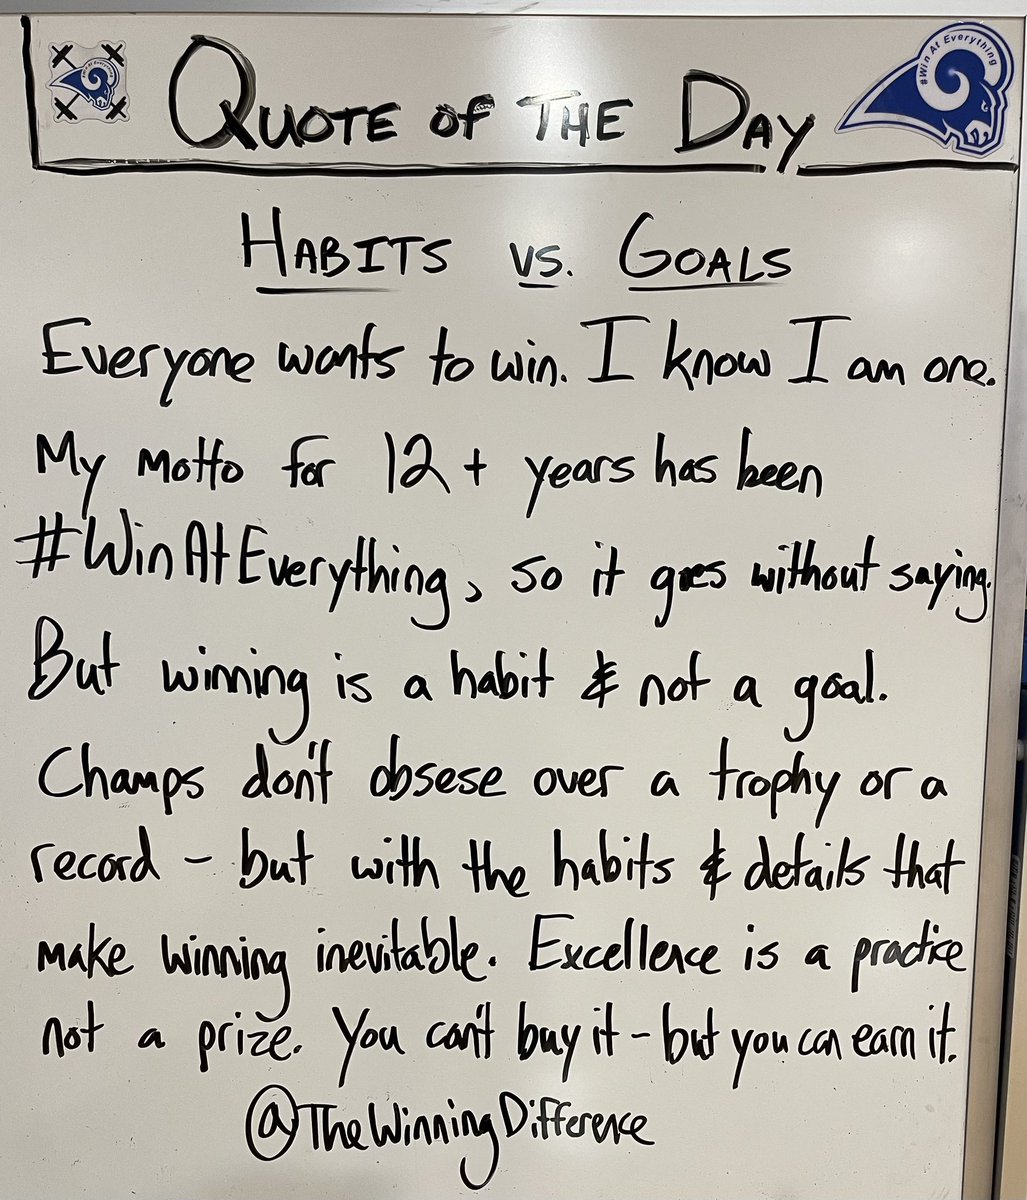 #Win At Everything
QUOTE OF THE DAY
#Win At Everything
HABITS VS. GOALS
Everyone wants to win. I know I am one.
My motto for 12+ years has been
#WinAtEverything, so it goes without saying.
But winning is a habit & not a goal.
Champs don't obsese over a trophy or a
record - but with the habits & details that
make winning inevitable. Excellence is a practice
not a prize. You can't buy it - but you can earn it.
@TheWinningDifference